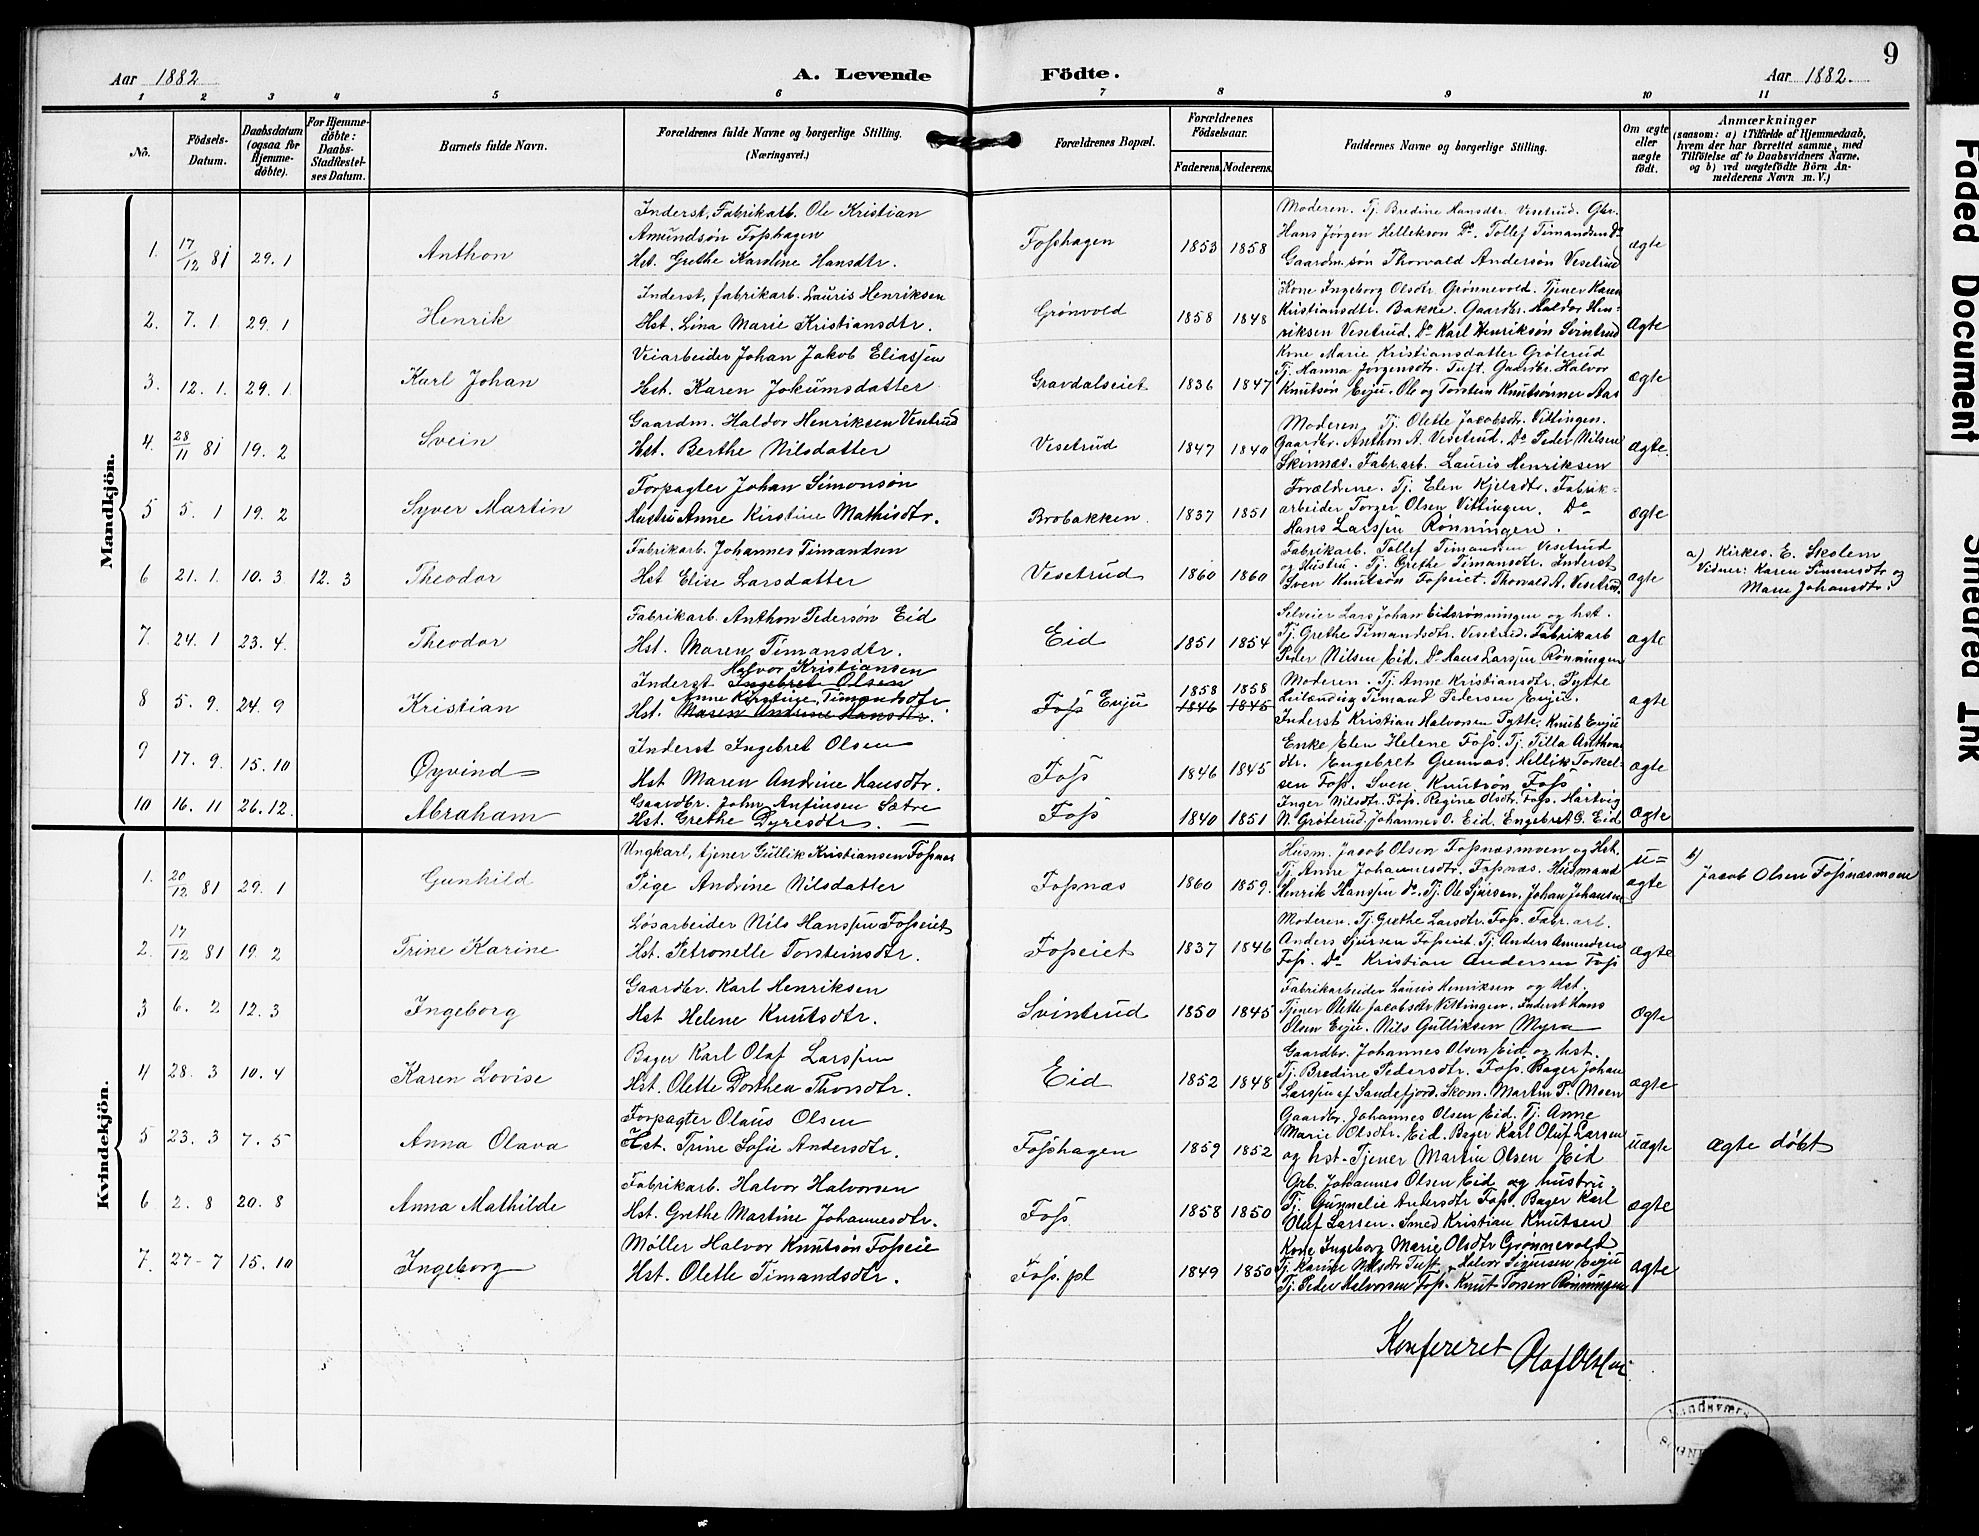 9
Aar 1882
A. Levende Födte.
Aar 1882.
1 2 3 4 5 6 7 8 9 10 11
No.
Födsels-Datum.
Daabsdatum (ogsaa for Hjemmedöbte).
For Hjemmedöbte: Daabs-Stadfæstelses Datum.
Barnets fulde Navn.
Forældrenes fulde Navne og borgerlige Stilling.
(Næringsvei.)
Forældrenes Bopæl.
Forældrenes Födselsaar.
Faderens. Moderens.
Faddernes Navne og borgerlige Stilling.
Om ægte eller uægte födt.
Anmærkninger
(saasom: a) i Tilfælde af Hjemmedaab, hvem der har forrettet samme, med Tilföielse af to Daabsvidners Navne, og b) ved uægtefödte Börn Anmelderens Navn m. V.)
Mandkjön.
1. 17/12 81 29. 1 Anthon
Inderst, Fabrikarb. Ole Kristian
Amundsøn Fosshagen
Hst. Grethe Karoline Hansdtr.
Fosshagen 1853 1858
Moderen. Tj. Bredine Hansdtr. Vesetrud. Gbr.
Hans Jörgen Hellekson Do. Tollef Timandsen Do
Gaardm.søn Thorvald Andersøn Vesetrud
ægte
2. 7. 1 29. 1 Henrik
Inderst, fabrikarb. Lauris Henriksen
Hst. Lina Marie Kristiansdtr.
Grønvold 1858 1848
Kone Ingeborg Olsdtr Grønnevold. Tjener Karen
Kristiansdtr. Bakke. Gaardbr. Haldor Hen-
riksen Vesetrud. Do Karl Henriksøn Svintrud
ægte
3. 12. 1. 29. 1 Karl Johan
Veiarbeider Johan Jakob Eliassen
Hst. Karen Jokumsdatter
Gravdalseiet 1836 1847
Kone Marie Kristiansdatter Grøterud
Tj. Hanna Jörgensdtr. Tuft. Gaardbr. Halvor
Knutsøn Evju. Ole og Torstein Knutsønner Aas
ægte
4. 28/11 81 19. 2 Svein
Gaardm. Haldor Henriksen Vesetrud
Hst. Berthe Nilsdatter
Vesetrud 1847 1840
Moderen. Tj. Olette Jacobsdtr. Vittingen.
Gaardbr. Anthon A. Vesetrud. Do Peder Nilsen
Skinnæs. Fabr.arb. Lauris Henriksen
ægte.
5 5. 1 19. 2 Syver Martin
Forpagter Johan Simonsøn
Hustru Anne Kirstine Mathisdtr.
Brobakken. 1837 1851
Forældrene. Tj. Elen Kjelsdtr. Fabrik-
arbeider Torger Olsen Vittingen. Do
Hans Larssen Rønningen.
ægte
6 21. 1. 10. 3 12. 3 Theodor
Fabrikarb. Johannes Timandsen
Hst Elise Larsdatter
Vesetrud 1860 1860
Fabrikarb. Tollef Timandsen Vesetrud
og Hustru. Tj. Grethe Timansdtr. Inderst
Sven Knutsøn Fosseiet. Thorvald A. Vesetrud.
ægte
a) Kirkes. E. Skolem
Vidner: Karen Simensdtr og
Marie Johansdtr.
7. 24. 1 23. 4. Theodor
Fabrikarb. Anthon Pedersøn Eid
Hst. Maren Timansdtr.
Eid 1851 1854
Selveier Lars Johan Eidsrønningen og hst.
Tj. Grethe Timandsdtr. Vesetrud. Fabrikarb
Peder Nilsen Eid. Do Hans Larssen Rønningen
ægte
8 5. 9. 24. 9 Kristian
Halvor Kristiansen
Inderst Ingebret Olsen
Anne Kirstine Timandsdtr
Hst. Maren Andrine Hansdtr.
Foss Evju 1858 1858
1846 1845
Moderen. Tj. Anne Kristiansdtr. Pytte
Leilænding Timand Pedersen Evju.
Inderst Kristian Halvorsen Pytte. Knut Evju
ægte
9 17. 9. 15. 10 Øyvind
Inderst Ingebret Olsen
Hst Maren Andrine Hansdtr.
Foss 1846 1845
Enke Elen Helene Foss. Tj. Tilla Anthons
dtr. Engebret Grennæs. Hellik Torkel-
sen Foss. Sven Knutsøn Foss.
ægte
10 16. 11 26. 12. Abraham
Gaardbr. John Anfinsen Sætre
Hst. Grethe Dyresdtr.
Foss 1840 1851
Inger Nilsdtr. Foss. Regine Olsdtr. Foss. Hartvig
N. Grøterud. Johannes O. Eid. Engebret G. Eid
ægte
Kvindekjön.
1. 20/12 81 29. 1 Gunhild
Ungkarl, tjener Gullik Kristiansen Fossnæs
Pige Andrine Nilsdatter
Fossnæs 1860 1859.
Husm. Jacob Olsen Fossnæsmoen og Hst.
Tj. Anne Johannesdtr. Fossnæs. Husmand
Henrik Hanssen Do. Tj. Ole Sjursen, Johan Johansen
u-
ægte
b)
Jacob Olsen Fossnæsmoen
2. 17/12 81 19. 2 Trine Karine
Løsarbeider Nils Hanssen Fosseiet
Hst. Petronelle Torsteinsdtr.
Fosseiet 1837 1846
Moderen. Tj. Grethe Larsdtr. Foss. Fabr. arb.
Anders Sjursen Fosseiet. Tj. Anders Amundsen
Foss. Do Kristian Andersen Foss
ægte
3 6. 2 12. 3 Ingeborg
Gaardbr. Karl Henriksen
Hst Helene Knutsdtr.
Svintrud 1850 1845
Fabrikarbeider Lauris Henriksen og Hst.
Tjener Olette Jacobsdtr Vittingen. Inderst Hans
Olsen Evju. Nils Gulliksen Myra
ægte
4 28. 3 10. 4 Karen Lovise
Bager Karl Olaf Larssen
Hst. Olette Dorthea Thorsdtr.
Eid 1852 1848
Gaardbr. Johannes Olsen Eid og hst.
Tj. Bredine Pedersdtr. Foss. Bager Johan
Larssen af Sandefjord. Skom. Martin P. Moen
ægte
5 23. 3 7. 5 Anna Olava
Forpagter Olaus Olsen
Hst. Trine Sofie Andersdtr.
Fosshagen 1859 1852
Gaardbr. Johannes Olsen Eid. Tj. Anne
Marie Olsdtr. Eid. Bager Karl Oluf Larsen
og hst. Tjener Martin Olsen Eid
uægte
ægte döbt
6 2. 8 20. 8 Anna Mathilde
Fabrikarb. Halvor Halvorsen
Hst. Grethe Martine Johannesdtr.
Foss 1858 1850
Grb. Johannes Olsen Eid og hustru.
Tj. Gunnelie Andersdtr Foss. Bager Karl
Oluf Larsen. Smed Kristian Knutsen
ægte
7. 27-7 15. 10 Ingeborg
Møller Halvor Knutsøn Fosseie
Hst. Olette Timandsdtr.
Foss. pl 1849 1850
Kone Ingeborg Marie Olsdtr Grønnevold
Tj. Karine Nilsdtr Tuft. Helvor Sjursen Evju
Tj. Peder Halvorsen Foss. Knut Torsen Rønningen
ægte
Konfereret
Faded Document
Smeared Ink